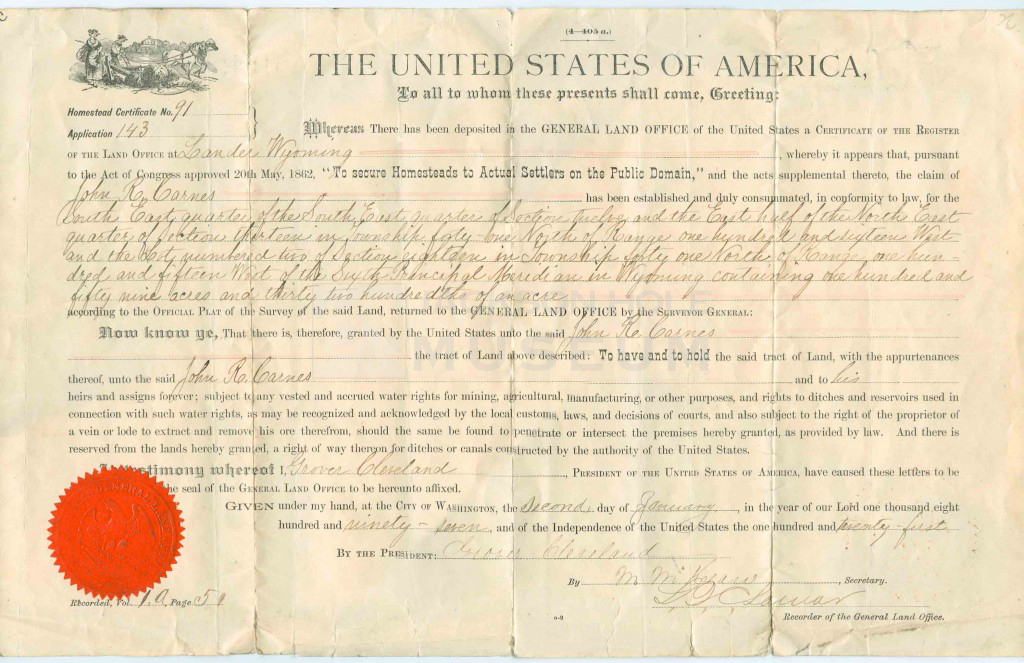 (4—405 a.)
THE UNITED STATES OF AMERICA,
To all to whom these presents shall come, Greeting:
Homestead Certificate No. 91
Application 143
Whereas There has been deposited in the GENERAL LAND OFFICE of the United States a CERTIFICATE OF THE REGISTER
OF THE LAND OFFICE at Lander Wyoming, whereby it appears that, pursuant
to the Act of Congress approved 20th May, 1862, "To secure Homesteads to Actual Settlers on the Public Domain," and the acts supplemental thereto, the claim of
John R. Carnes has been established and duly consummated, in conformity to law, for the
South East quarter of the South East quarter of Section twelve and the East half of the North East
quarter of Section thirteen in Township forty-one North of Range one hundred and sixteen West
and the Lot numbered two of Section eighteen in Township forty one North of Range one hun-
dred and fifteen West of the Sixth Principal Meridian in Wyoming containing one hundred and
fifty nine acres and thirty two hundredths of an acre
according to the OFFICIAL PLAT of the Survey of the said Land, returned to the GENERAL LAND OFFICE by the SURVEYOR GENERAL:
Now know ye, That there is, therefore, granted by the United States unto the said John R. Carnes
the tract of Land above described: To have and to hold the said tract of Land, with the appurtenances
thereof, unto the said John R. Carnes and to his
heirs and assigns forever; subject to any vested and accrued water rights for mining, agricultural, manufacturing, or other purposes, and rights to ditches and reservoirs used in
connection with such water rights, as may be recognized and acknowledged by the local customs, laws, and decisions of courts, and also subject to the right of the proprietor of
a vein or lode to extract and remove his ore therefrom, should the same be found to penetrate or intersect the premises hereby granted, as provided by law. And there is
reserved from the lands hereby granted, a right of way thereon for ditches or canals constructed by the authority of the United States.
In testimony whereof I, Grover Cleveland, PRESIDENT OF THE UNITED STATES OF AMERICA, have caused these letters to be
the seal of the GENERAL LAND OFFICE to be hereunto affixed.
GIVEN under my hand, at the CITY OF WASHINGTON, the second day of January, in the year of our Lord one thousand eight
hundred and ninety-seven, and of the Independence of the United States the one hundred and twenty-first
BY THE PRESIDENT: Grover Cleveland
By M. McKean, Secretary.
L. Q. C. Lamar
Recorded, Vol. 10, Page 59
Recorder of the General Land Office.
HOLE
MUSEUM